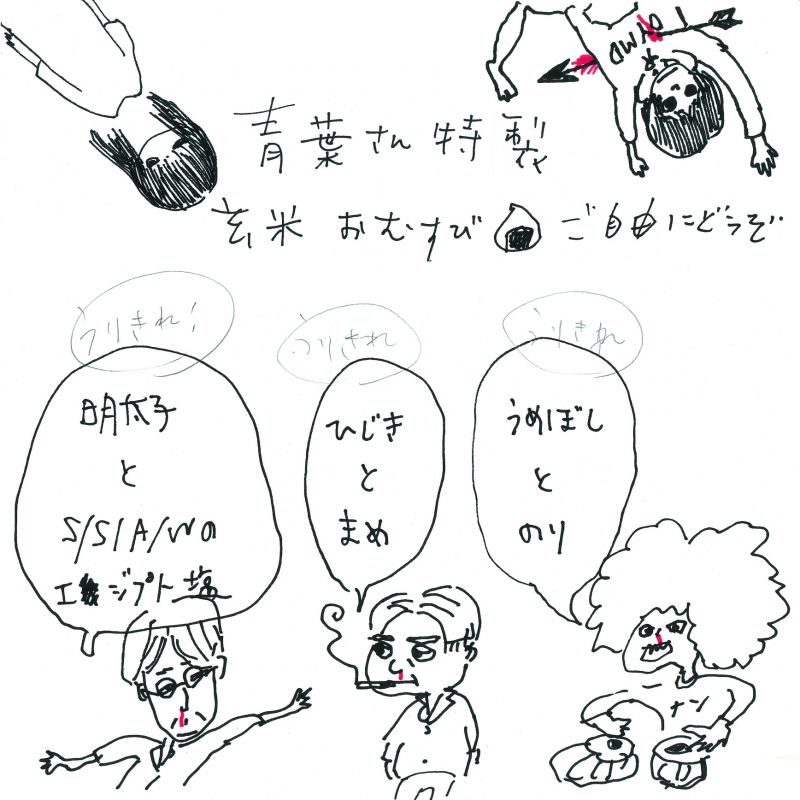 OYMD
青葉さん特製
玄米 おむすび ご自由にどうぞ
うりきれ!
うりきれ
うりきれ
明太子
と
S/S/A/Wの
エジプト塩
ひじき
と
まめ
うめぼし
と
のり